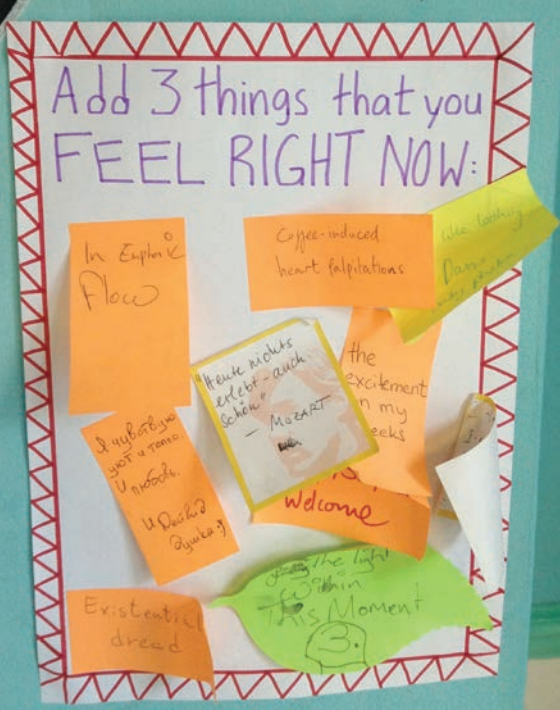 Add 3 things that you
FEEL RIGHT NOW:
In Euphoric
Flow
Coffee-induced
heart palpitations
like looking
"Heute nichts
erlebt - auch
schön"
- MOZART
the
excitement
my
Я чувствую
уют и тепло.
И любовь.
И
Душка :)
welcome
the light
within
This Moment
3.
Existential
dread